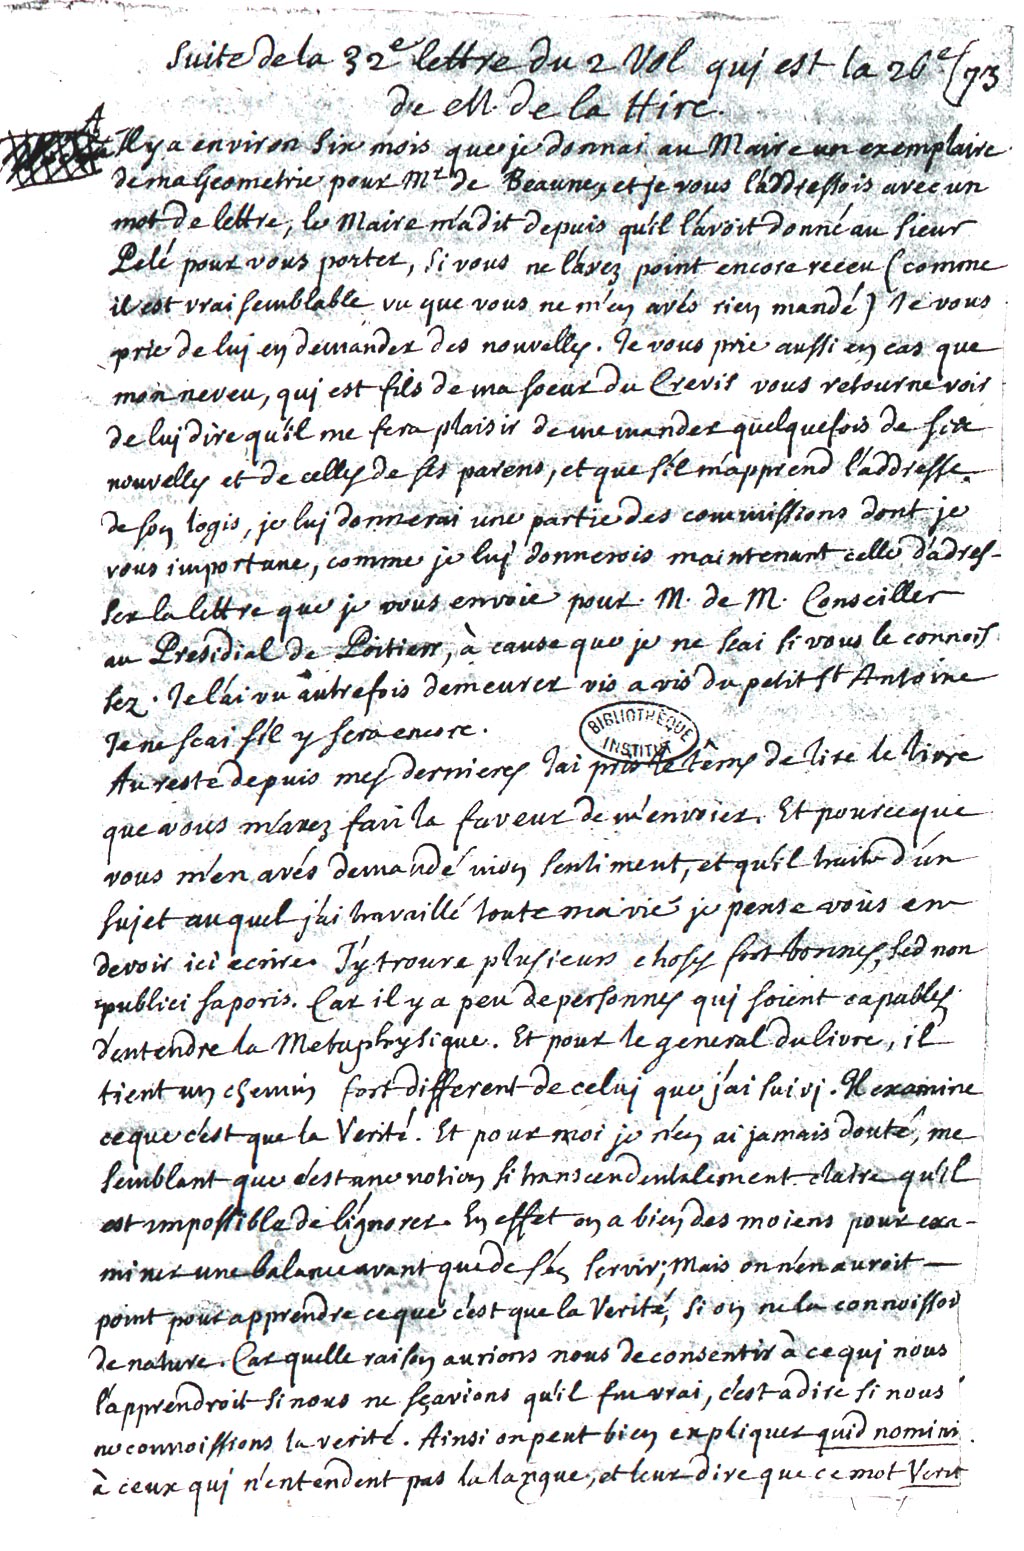 Suite de la 32e lettre du 2 Vol qui est la 26e (73
de M. de la Hire.
A
Il y a environ six mois que je donnai au Maire un exemplaire
de ma Geometrie pour Mr de Beaune, et je vous l'addressois avec un
mot de lettre, le Maire m'a dit depuis qu'il l'avoit donné au sieur
Pelé pour vous porter, si vous ne l'avez point encore receu (comme
il est vraisemblable vu que vous ne m'en avés rien mandé) Je vous
prie de lui en demander des nouvelles. Je vous prie aussi en cas que
mon neveu, qui est fils de ma soeur du Crevis vous retourne voir
de lui dire qu'il me fera plaisir de me mander quelquefois de ses
nouvelles et de celles de ses parens, et que s'il m'apprend l'addresse
de son logis, je lui donnerai une partie des commissions dont je
vous importune, comme je lui donnerois maintenant celle d'adres-
ser la lettre que je vous envoie pour M. de M. Conseiller
au Presidial de Poitiers, à cause que je ne scai si vous le connois
sez. Je l'ai vu autrefois demeurer vis a vis du petit St Antoine
Je ne scai s'il y sera encore.
BIBLIOTHÈQUE
INSTITUT
Au reste depuis mes dernieres J'ai pris le têms de lire le livre
que vous m'avez fait la faveur de m'envoier. Et pource que
vous m'en avés demandé mon sentiment, et qu'il traite d'un
sujet auquel j'ai travaillé toute ma vie je pense vous en
devoir ici ecrire. J'y trouve plusieurs choses fort bonnes, sed non
publici saporis. Car il y a peu de personnes qui soient capables
d'entendre la Metaphysique. Et pour le general du livre, il
tient un chemin fort different de celui que j'ai suivi. Il examine
ce que c'est que la Verité. Et pour moi je n'en ai jamais douté, me
semblant que c'est une notion si transcendentalement claire qu'il
est impossible de l'ignorer. En effet on a bien des moiens pour exa-
miner une balance avant que de s'en servir, Mais on n'en auroit
point pour apprendre ce que c'est que la Verité, si on ne la connoissoit
de nature. Car quelle raison aurions nous de consentir à ce qui nous
l'apprendroit si nous ne sçavions qu'il fut vrai, c'est a dire si nous
ne connoissions la verité. Ainsi on peut bien expliquer quid nominis
à ceux qui n'entendent pas la langue, et leur dire que ce mot Verit